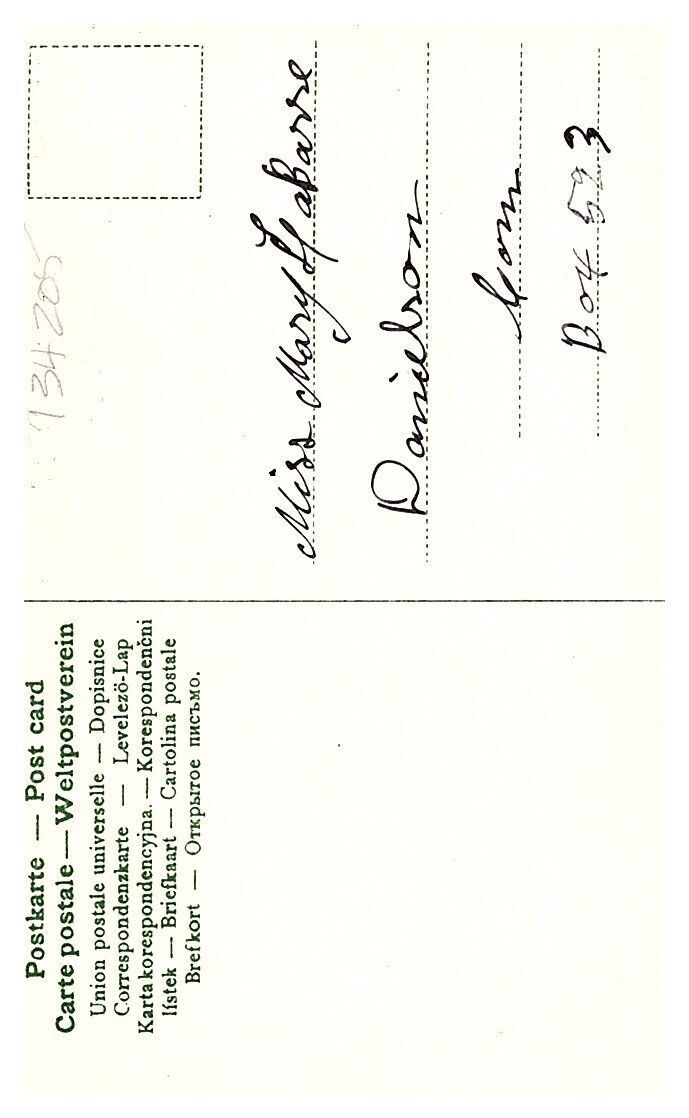 Postkarte — Post card
Carte postale — Weltpostverein
Union postale universelle — Dopisnice
Correspondenzkarte — Levelező-Lap
Karta korespondencyjna. — Korespondenčni
lístek — Briefkaart — Cartolina postale
Brefkort — Открытое письмо.
934205
Miss Mary LaBarre
Danielson
Conn
Box 593